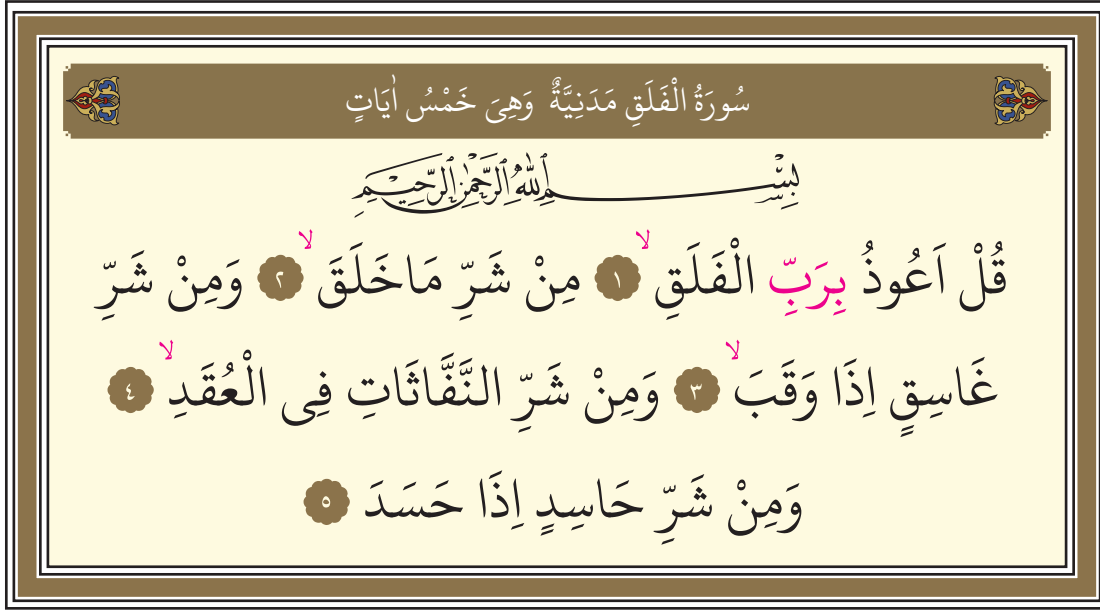 سُورَةُ الْفَلَقِ مَدَنِيَّةٌ وَهِىَ خَمْسُ اٰيَاتٍ
بِسْمِ اللّٰهِ الرَّحْمٰنِ الرَّحِيمِ
قُلْ اَعُوذُ بِرَبِّ الْفَلَقِۙ ١ مِنْ شَرِّ مَاخَلَقَۙ ٢ وَمِنْ شَرِّ
غَاسِقٍ اِذَا وَقَبَۙ ٣ وَمِنْ شَرِّ النَّفَّاثَاتِ فِى الْعُقَدِۙ ٤
وَمِنْ شَرِّ حَاسِدٍ اِذَا حَسَدَ ٥